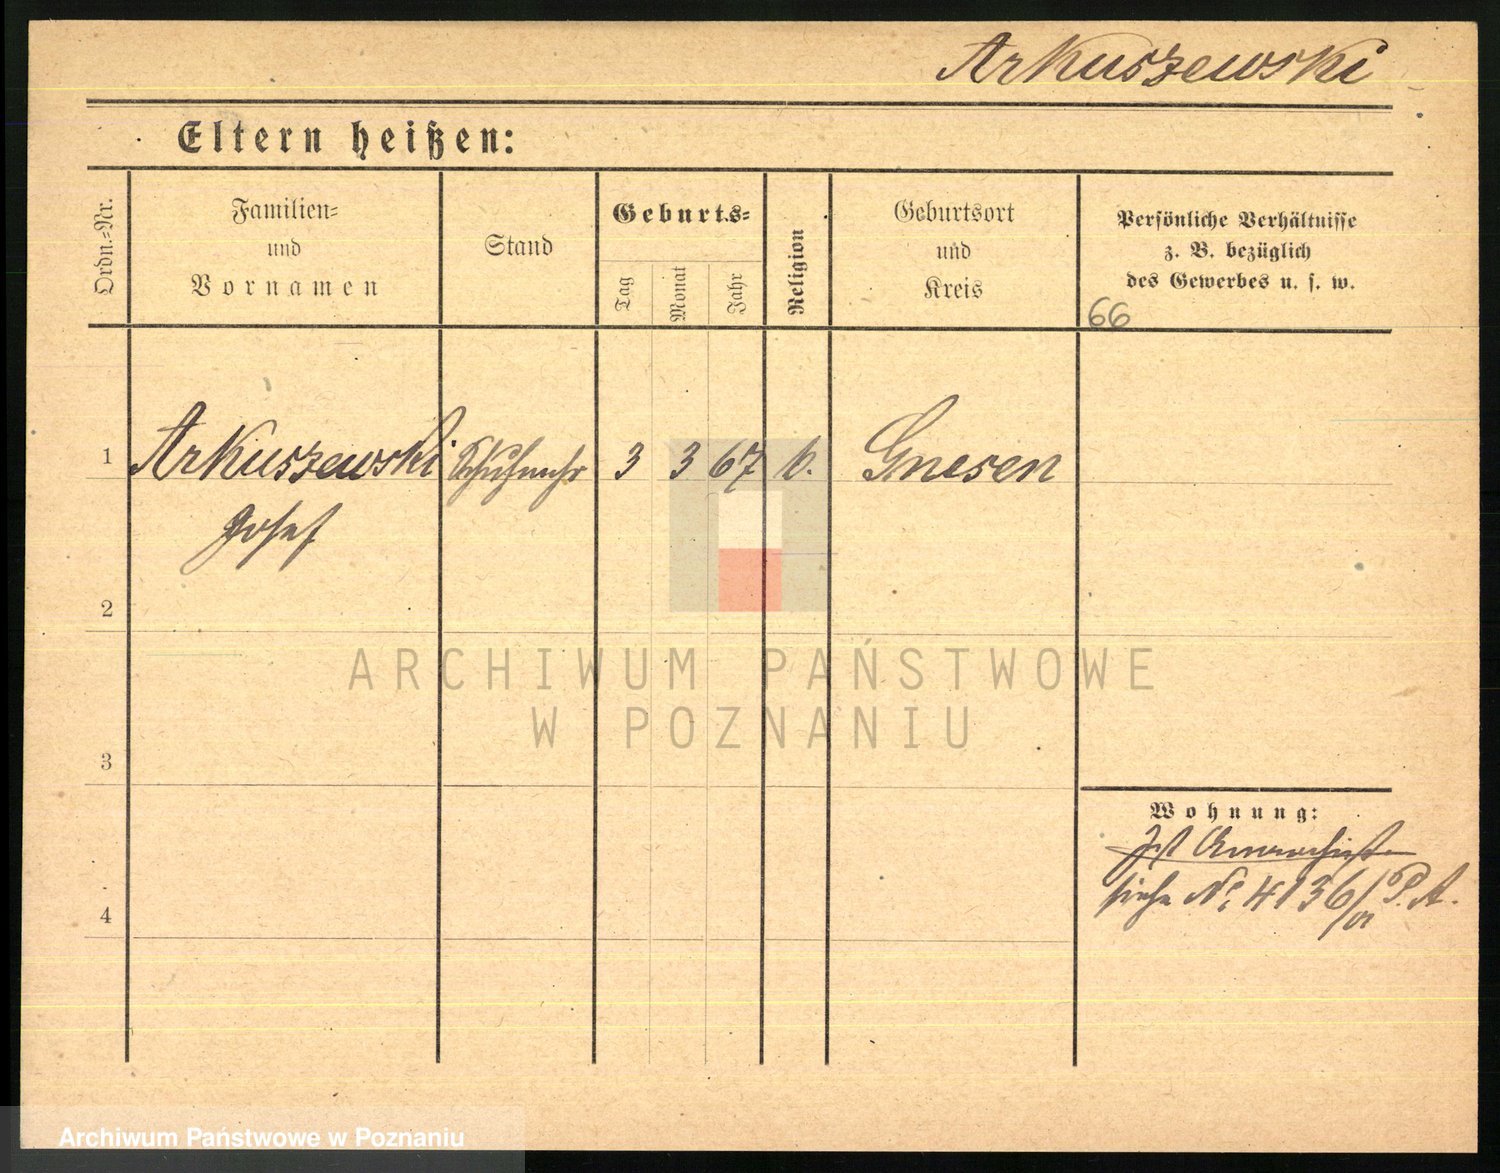 Arkuszewski
Eltern heißen:
Ordn.=Nr.
Familien=
und
Vornamen
Stand
Geburts=
Tag
Monat
Jahr
Religion
Geburtsort
und
Kreis
Persönliche Verhältnisse
z. B. bezüglich
des Gewerbes u. s. w.
66
1 Arkuszewski 3 3 67 k. Gnesen
Josef
2
ARCHIWUM PAŃSTWOWE
W POZNANIU
3
Wohnung:
Ist Anarchist
siehe No. 4136/01 P. A.
4
Archiwum Państwowe w Poznaniu